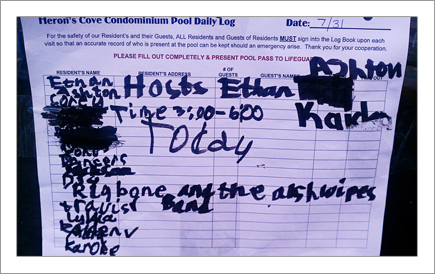 Heron's Cove Condominium Pool Daily Log
Date: 7/31
For the safety of our Resident's and their Guests, ALL Residents and Guests of Residents MUST sign into the Log Book upon each
visit so that an accurate record of who is present at the pool can be kept should an emergency arise. Thank you for your cooperation.
PLEASE FILL OUT COMPLETELY & PRESENT POOL PASS TO LIFEGUA
RESIDENT'S NAME RESIDENT'S ADDRESS # OF GUESTS GUEST'S NAME
Ethan Hosts Ethan Ashton
Ashton Kaiden
Corey
Time 3:00-6:00
Today
Dancers
Rigbone and the ashwipes
Travis Band
Lydia
Karoke